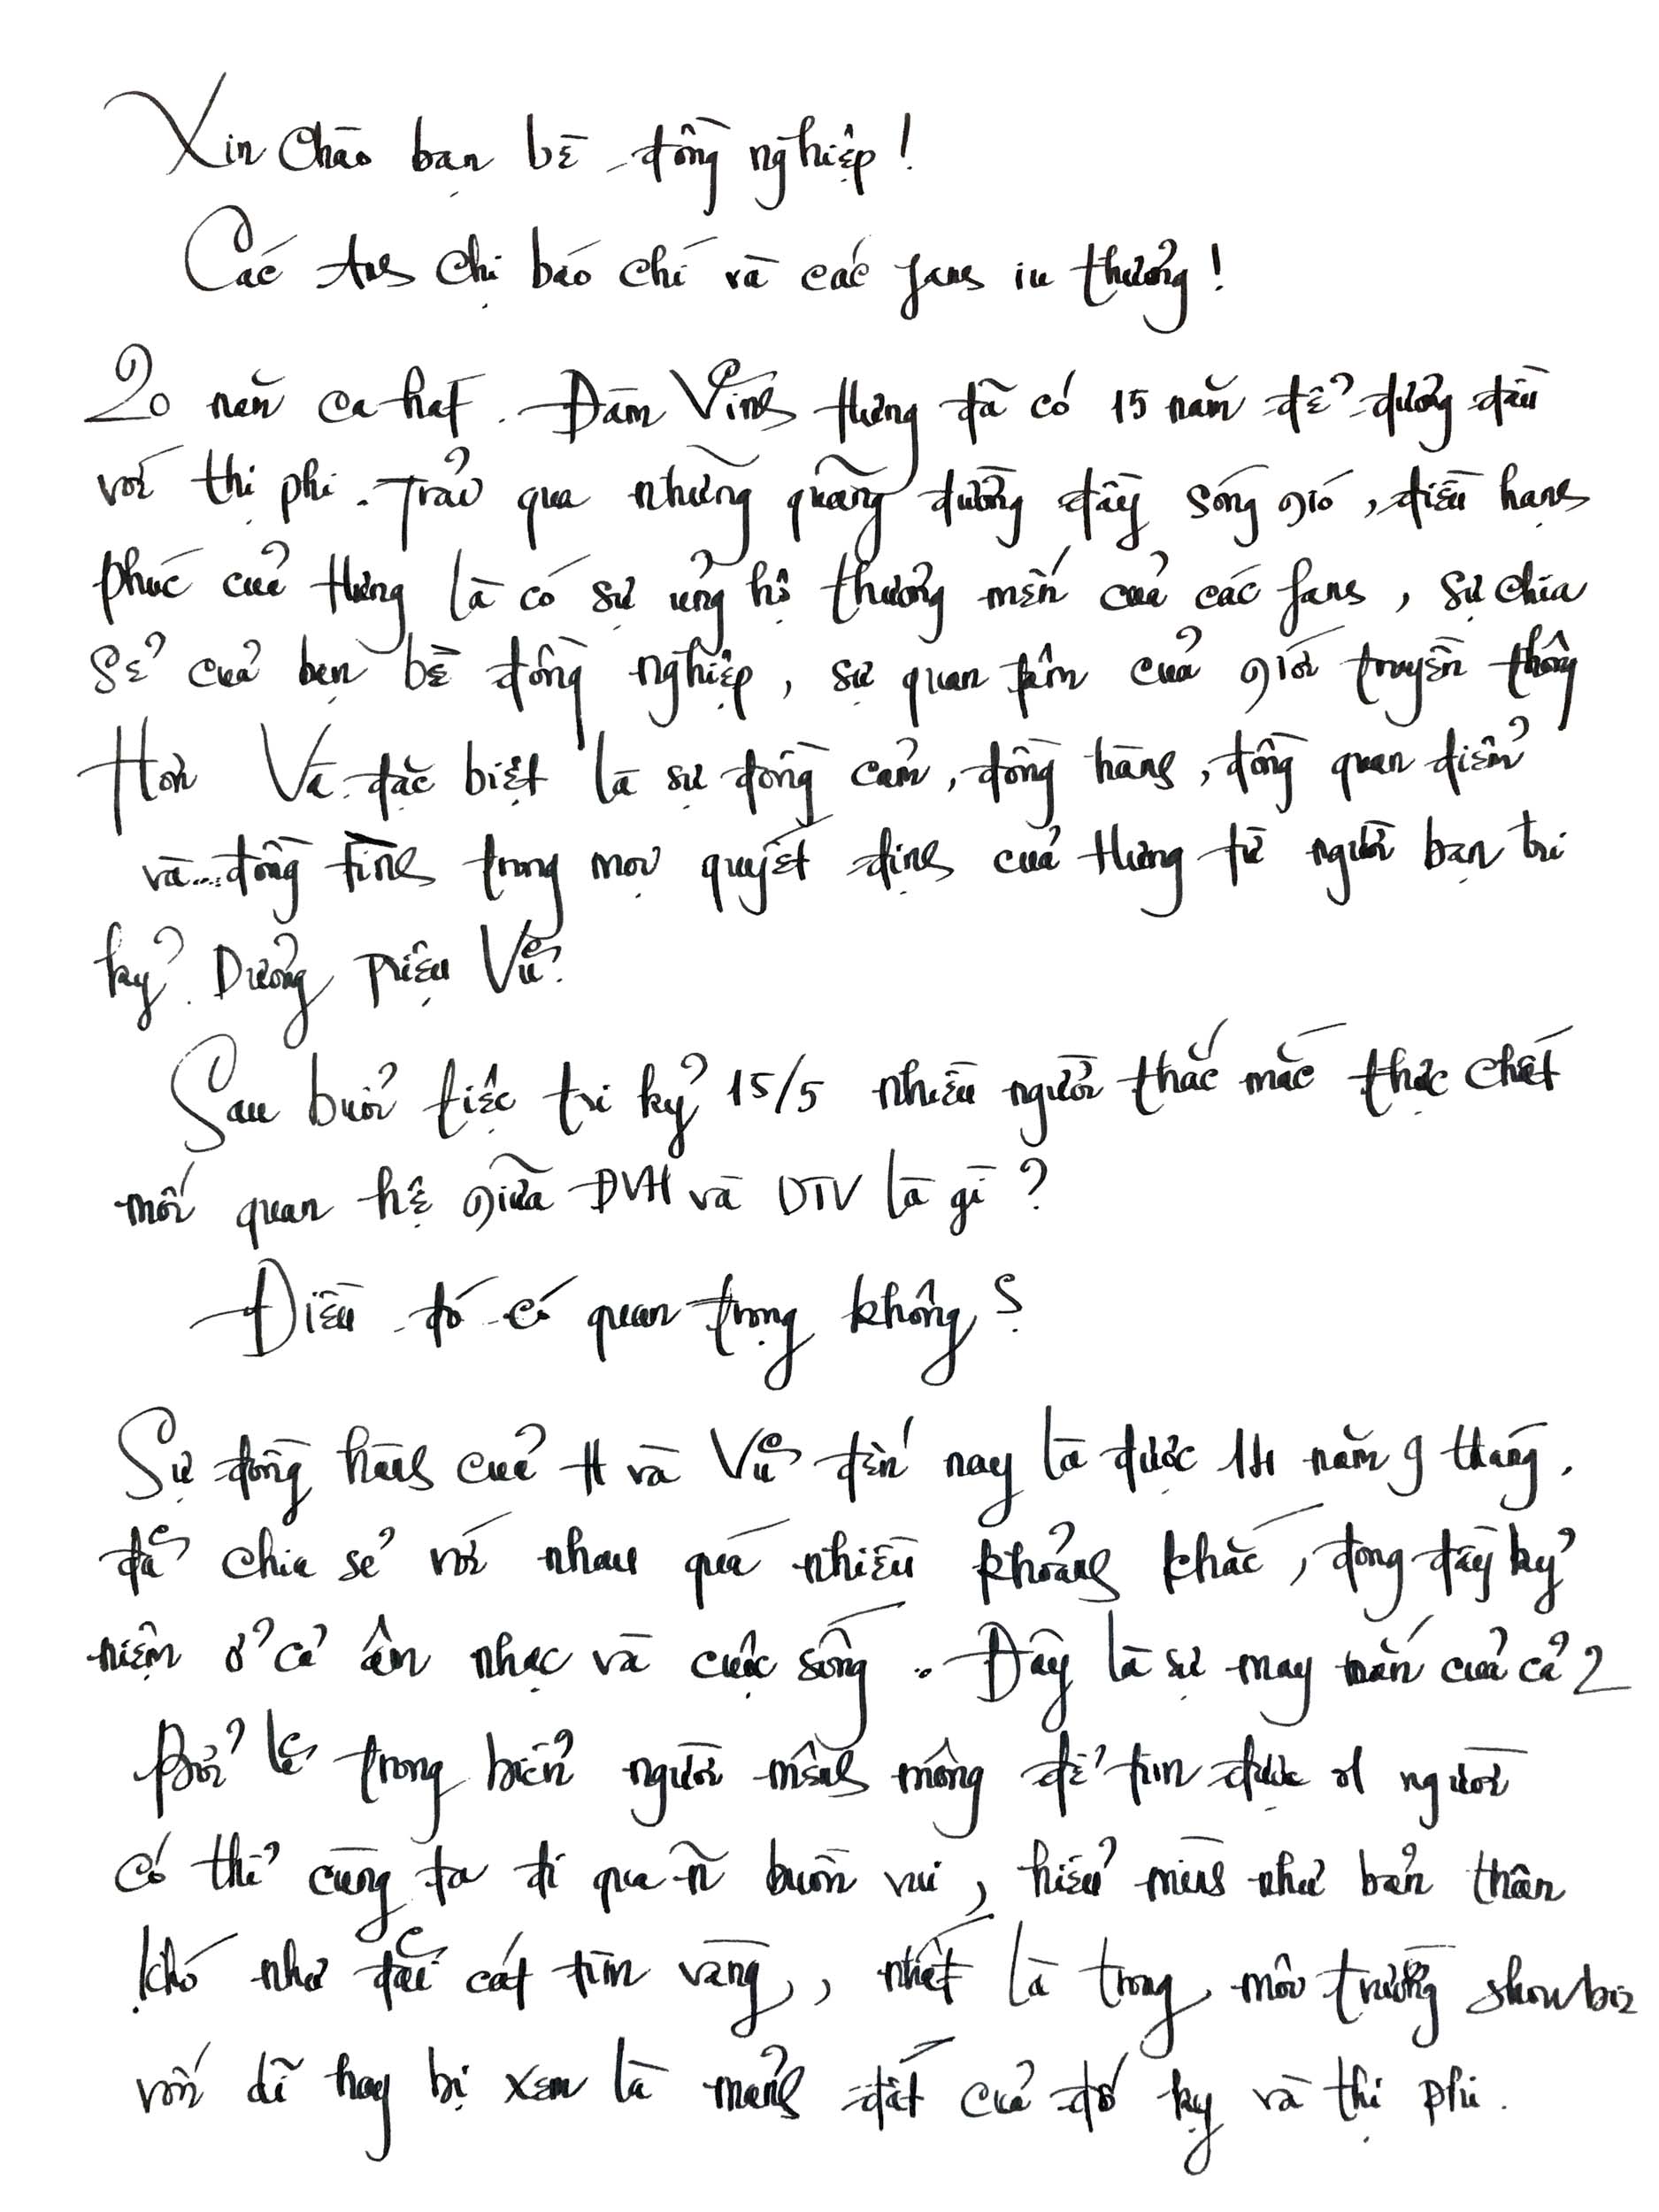 Xin chào bạn bè đồng nghiệp!
Các Anh Chị báo chí và các fans iu thương!
20 năm ca hát. Đàm Vĩnh Hưng đã có 15 năm để đương đầu
với thị phi. Trải qua những quãng đường đầy sóng gió, điều hạnh
phúc của Hưng là có sự ủng hộ thương mến của các fans, sự chia
sẻ của bạn bè đồng nghiệp, sự quan tâm của giới truyền thông
Hơn Và đặc biệt là sự đồng cảm, đồng hành, đồng quan điểm
và... đồng tình trong mọi quyết định của Hưng từ người bạn tri
kỷ. Dương Triệu Vũ.
Sau buổi tiệc tri kỷ 15/5 nhiều người thắc mắc thực chất
mối quan hệ giữa ĐVH và DTV là gì?
Điều đó có quan trọng không?
Sự đồng hành của H và Vũ đến nay là được 14 năm 9 tháng.
đã chia sẻ với nhau quá nhiều khoảng khắc, đong đầy kỷ
niệm ở cả âm nhạc và cuộc sống. Đây là sự may mắn của cả 2
Bởi lẽ trong biển người mênh mông để tìm được 1 người
có thể cùng ta đi qua ñ buồn vui, hiểu mình như bản thân
khó như đãi cát tìm vàng, nhất là trong môi trường showbiz
vốn dĩ hay bị xem là mảnh đất của đố kỵ và thị phi.